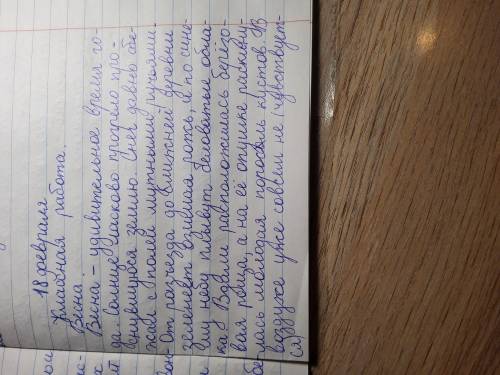 18 февраля
Классная работа.
Весна.
Весна - удивительное время го-
да. Солнце ласково пригрело про-
снувшуюся землю. Снег давно сбе-
жал с полей мутными ручьями.
От разъезда до ближней деревни
зеленеет озимая рожь. И по сине-
му небу плывут беловатые обла-
ка. Вдали расположилась берёзо-
вая роща, а на её опушке раскину-
лась молодая поросль кустов. В
воздухе уже совсем не (чувствует-
ся)